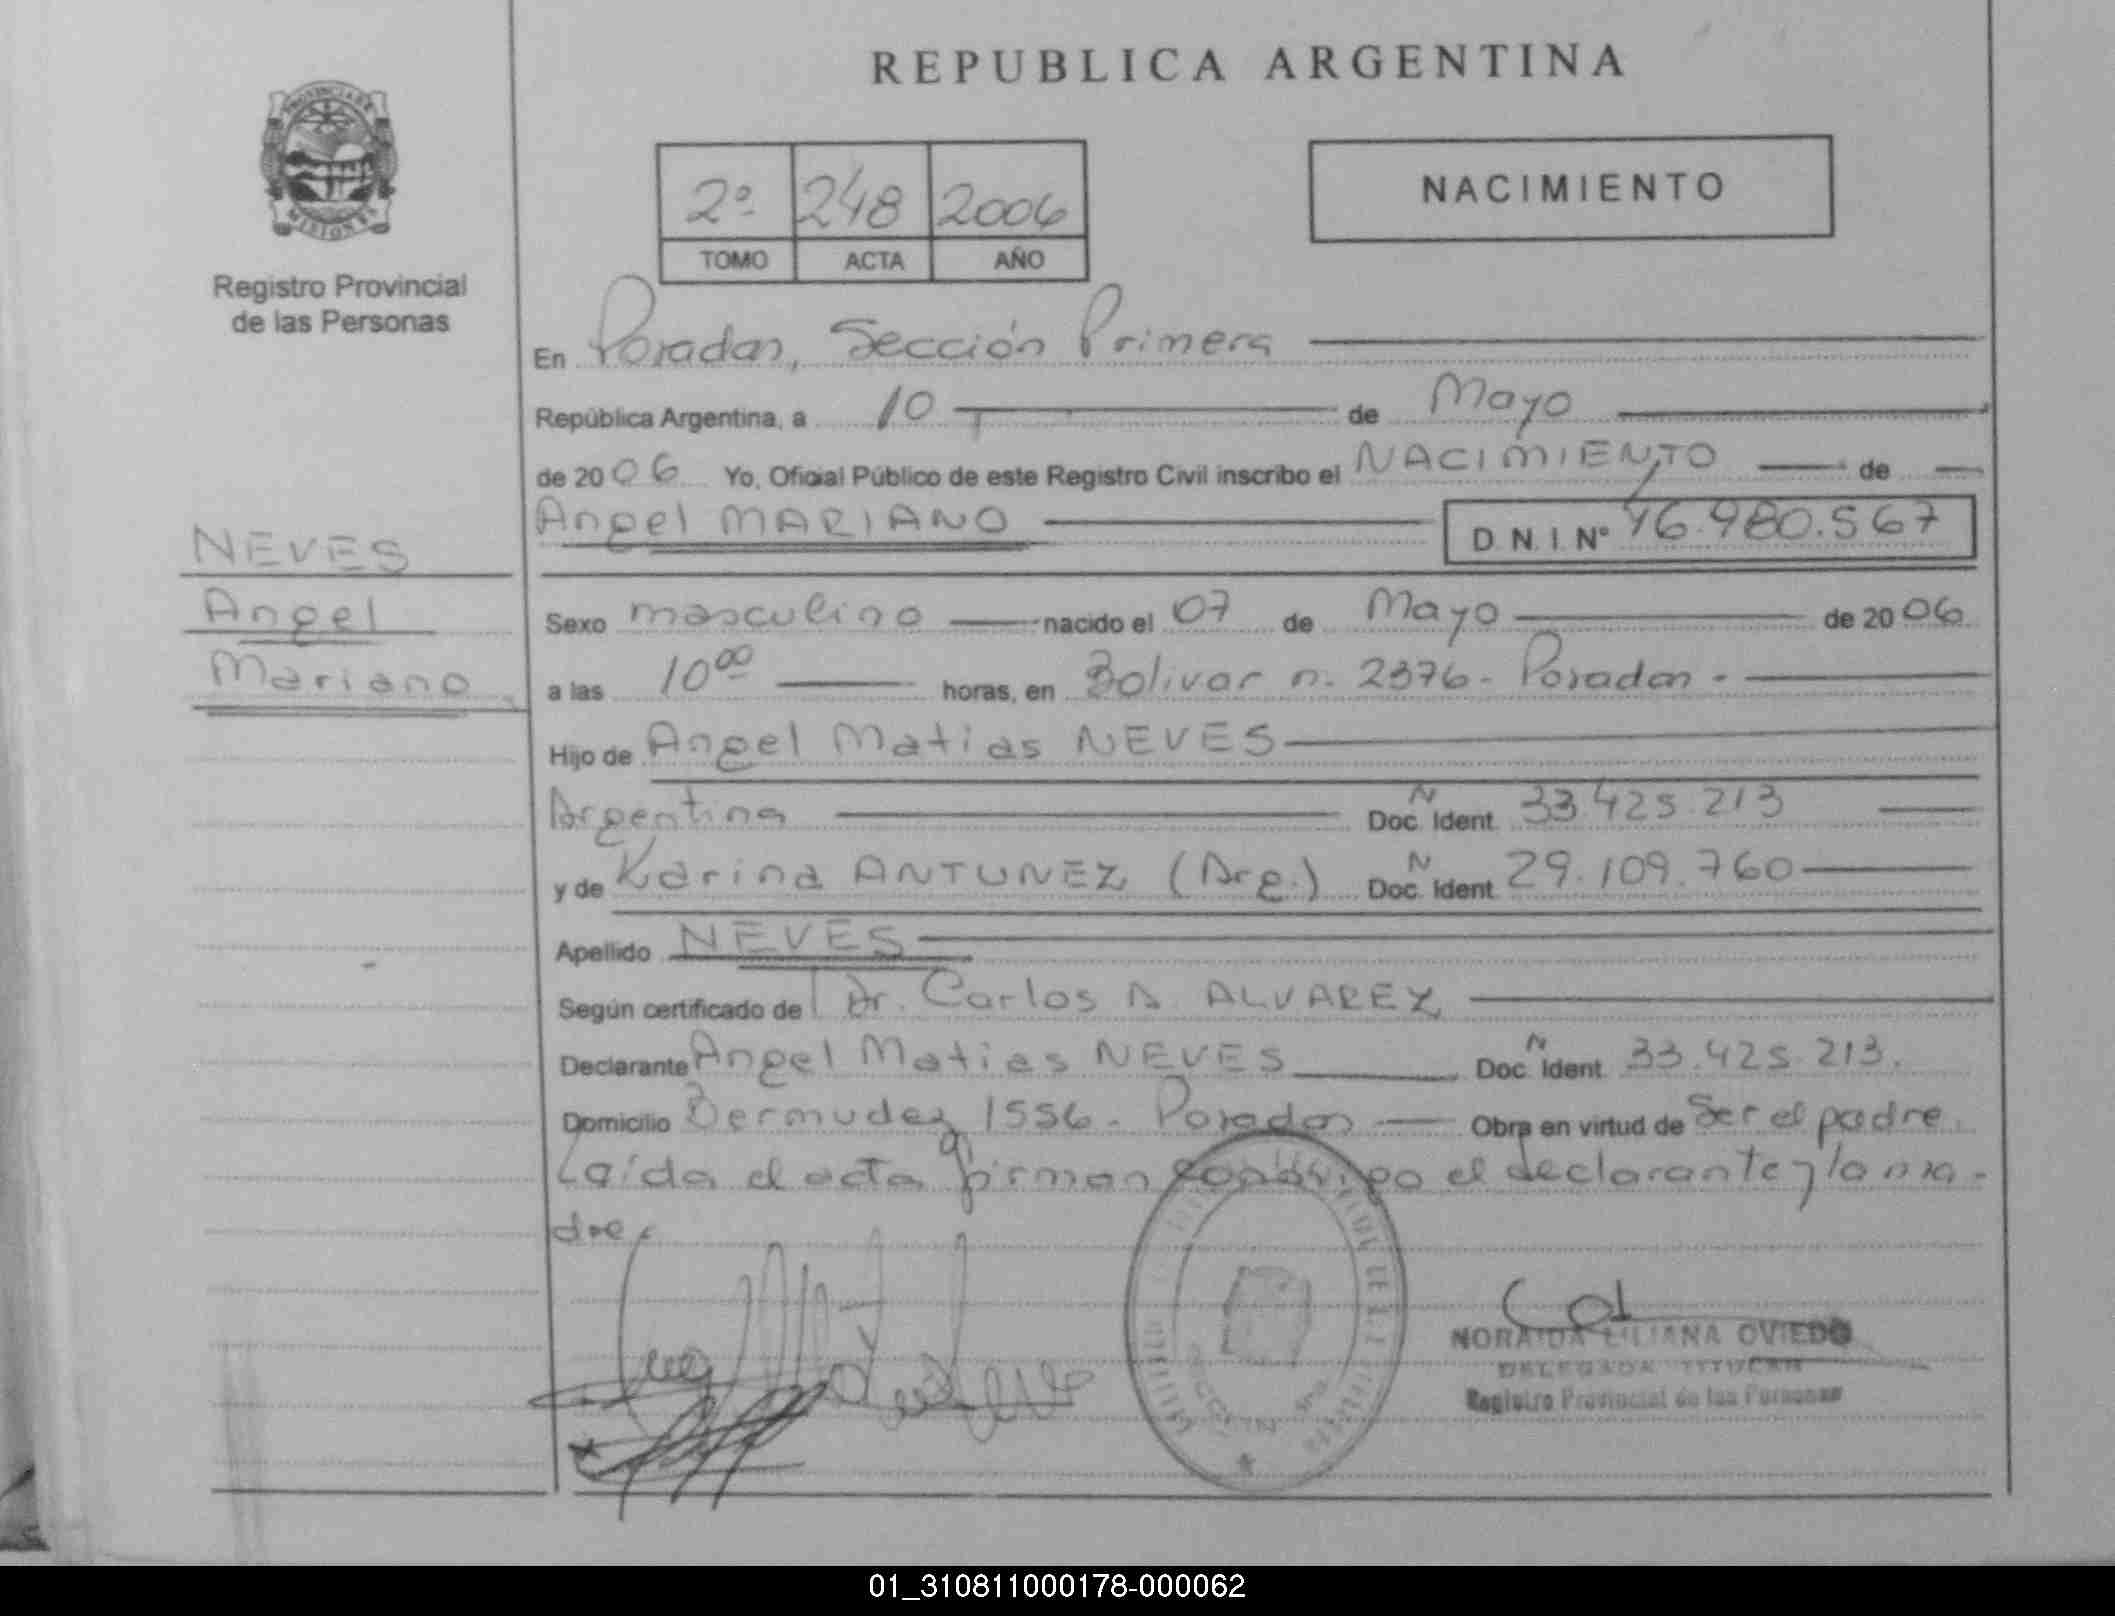 REPUBLICA ARGENTINA
PROVINCIA DE
MISIONES
Registro Provincial
de las Personas
2º 248 2006
TOMO ACTA AÑO
NACIMIENTO
En Posadas, Sección Primera
República Argentina, a 10 de Mayo
de 2006 Yo, Oficial Público de este Registro Civil inscribo el NACIMIENTO de
Angel MARIANO D.N.I. Nº 46.980.567
NEVES
Angel
Mariano
Sexo masculino nacido el 07 de Mayo de 2006
a las 10⁰⁰ horas, en Bolivar n. 2376- Posadas -
Hijo de Angel Matias NEVES
Argentina Doc. N Ident. 33.425.213
y de Karina ANTUNEZ (Arg.) Doc. N Ident. 29.109.760
Apellido NEVES
Según certificado de Dr. Carlos A. ALVAREZ
Declarante Angel Matias NEVES Doc. N Ident. 33.425.213.
Domicilio Bermudez 1556- Posadas Obra en virtud de Ser el padre.
Leída el acta firman conmigo el declarante y la ma-
dre.
NORAIDA LILIANA OVIEDO
DELEGADA TITULAR
Registro Provincial de las Personas
01_310811000178-000062